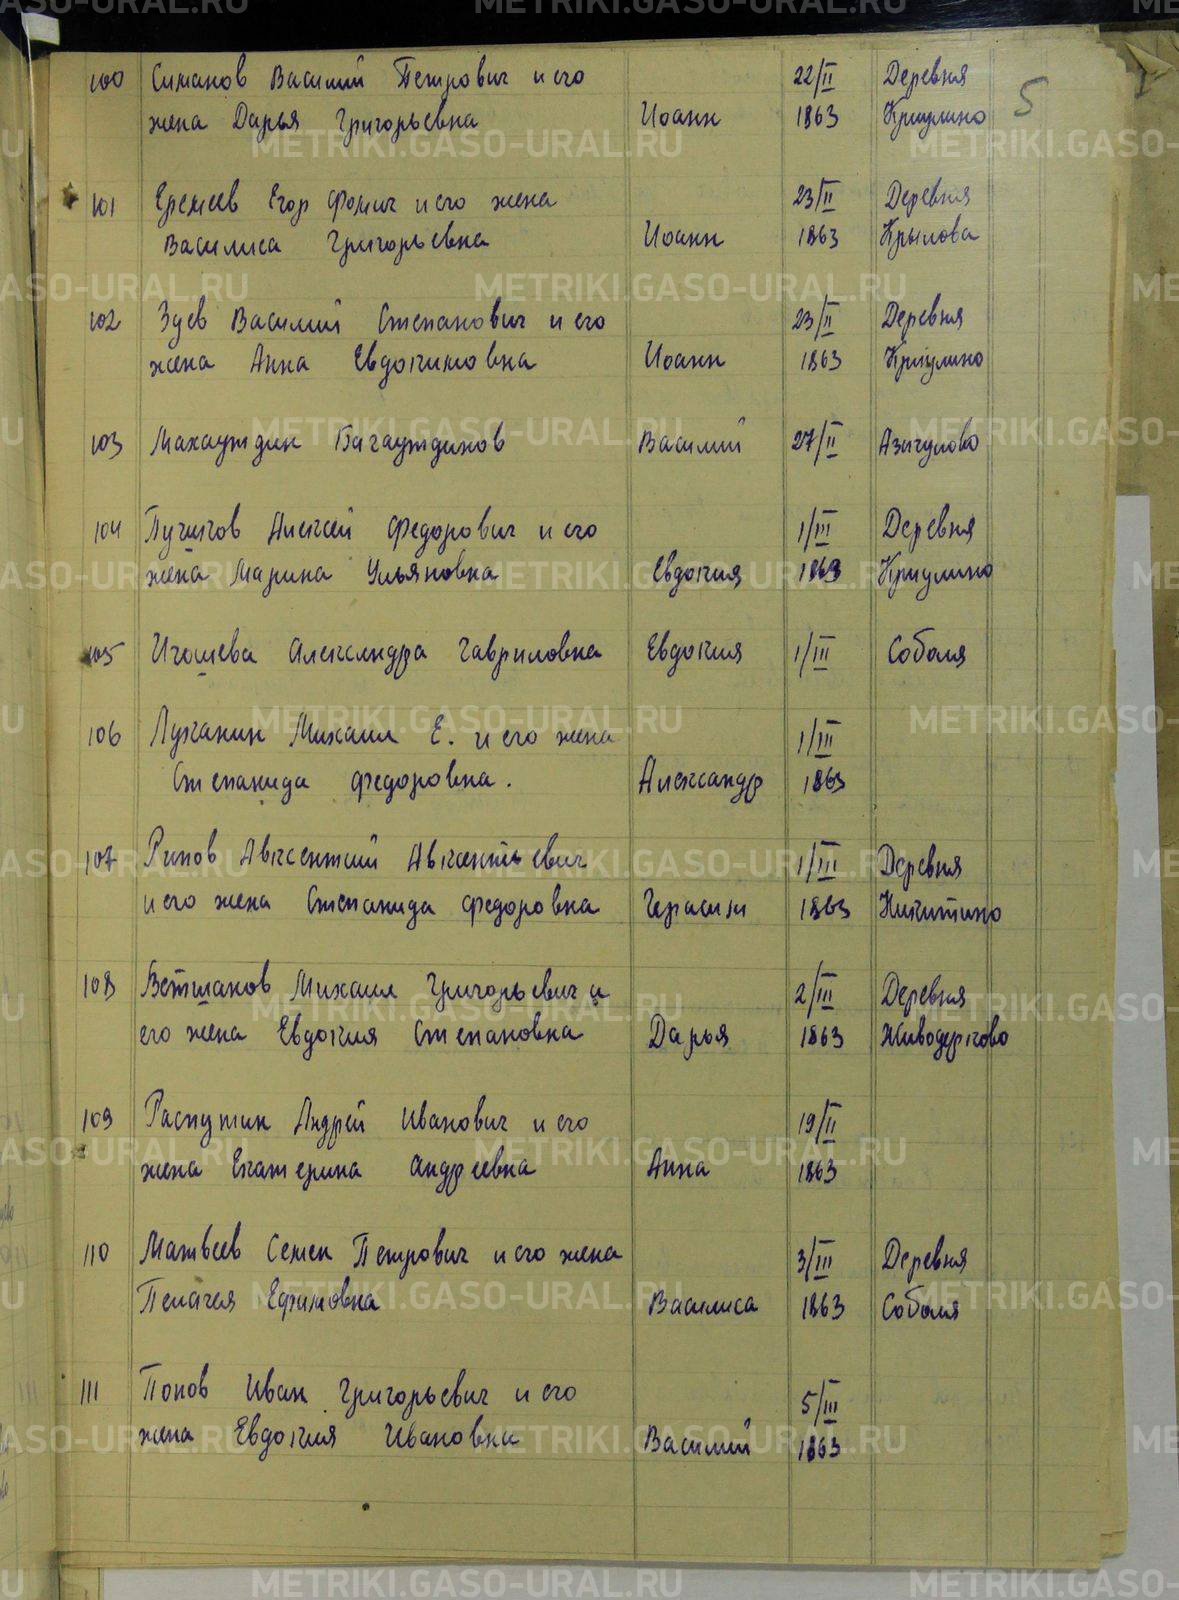 METRIKI.GASO-URAL.RU
5
100 Симанов Василий Петрович и его 22/II Деревня
жена Дарья Григорьевна Иоанн 1863 Криулино
101 Еремеев Егор Фомич и его жена 23/II Деревня
Василиса Григорьевна Иоанн 1863 Крылова
102 Зуев Василий Степанович и его 23/II Деревня
жена Анна Евдокимовна Иоанн 1863 Криулино
103 Махаутдин Багаутдинов Василий 27/II Азигулово
104 Алексей Федорович и его 1/III Деревня
жена Марина Ульяновна Евдокия 1863 Криулино
105 Игошева Александра Гавриловна Евдокия 1/III Соболя
106 Лужанин Михаил Е. и его жена 1/III
Степанида Федоровна. Александр 1863
107 Авксентий Авксентьевич 1/III Деревня
и его жена Степанида Федоровна Герасим 1863 Никитино
108 Ветшанов Михаил Григорьевич и 2/III Деревня
его жена Евдокия Степановна Дарья 1863 Живодерково
109 Распутин Андрей Иванович и его 19/II
жена Екатерина Андреевна Анна 1863
110 Матвеев Семен Петрович и его жена 3/III Деревня
Пелагея Ефимовна Василиса 1863 Соболя
111 Попов Иван Григорьевич и его 5/III
жена Евдокия Ивановна Василий 1863